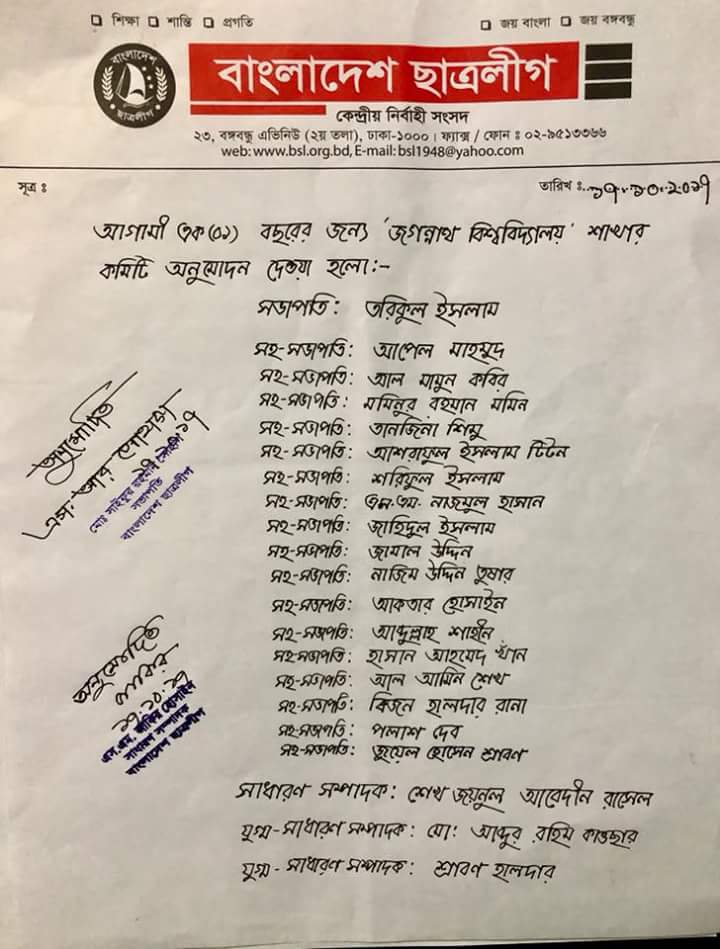 শিক্ষা শান্তি প্রগতি
জয় বাংলা জয় বঙ্গবন্ধু
বাংলাদেশ
ছাত্রলীগ
বাংলাদেশ ছাত্রলীগ
কেন্দ্রীয় নির্বাহী সংসদ
২৩, বঙ্গবন্ধু এভিনিউ (২য় তলা), ঢাকা-১০০০ । ফ্যাক্স / ফোন ঃ ০২-৯৫১৩৩৬৬
web: www.bsl.org.bd, E-mail: bsl1948@yahoo.com
সূত্র ঃ
তারিখ ঃ ১৭.১০.২০১৭
আগামী এক (০১) বছরের জন্য 'জগন্নাথ বিশ্ববিদ্যালয়' শাখার
কমিটি অনুমোদন দেওয়া হলো:-
সভাপতি: তরিকুল ইসলাম
সহ-সভাপতি: আপেল মাহমুদ
সহ-সভাপতি: আল মামুন কবির
সহ-সভাপতি: মমিনুর রহমান মমিন
সহ-সভাপতি: তানজিনা শিমু
সহ-সভাপতি: আশরাফুল ইসলাম টিটন
সহ-সভাপতি: শরিফুল ইসলাম
সহ-সভাপতি: এম.এম. নাজমুল হাসান
সহ-সভাপতি: জাহিদুল ইসলাম
সহ-সভাপতি: জামাল উদ্দিন
সহ-সভাপতি: নাজিম উদ্দিন তুষার
সহ-সভাপতি: আকতার হোসাইন
সহ-সভাপতি: আব্দুল্লাহ শাহীন
সহ-সভাপতি: হাসান আহমেদ খাঁন
সহ-সভাপতি: আল আমিন শেখ
সহ-সভাপতি: বিজন হালদার রানা
সহ-সভাপতি: পলাশ দেব
সহ-সভাপতি: জুয়েল হোসেন শ্রাবণ
সাধারণ সম্পাদক: শেখ জয়নুল আবেদীন রাসেল
যুগ্ম-সাধারণ সম্পাদক: মো: আব্দুর রহিম কাওছার
যুগ্ম-সাধারণ সম্পাদক: শ্রাবণ হালদার
অনুমোদিত
এস. আর সোহাগ
মোঃ সাইফুর রহমান সোহাগ
সভাপতি
বাংলাদেশ ছাত্রলীগ
অনুমোদিত
জাকির
১৭.১০.১৭
এস.এম. জাকির হোসাইন
সাধারণ সম্পাদক
বাংলাদেশ ছাত্রলীগ